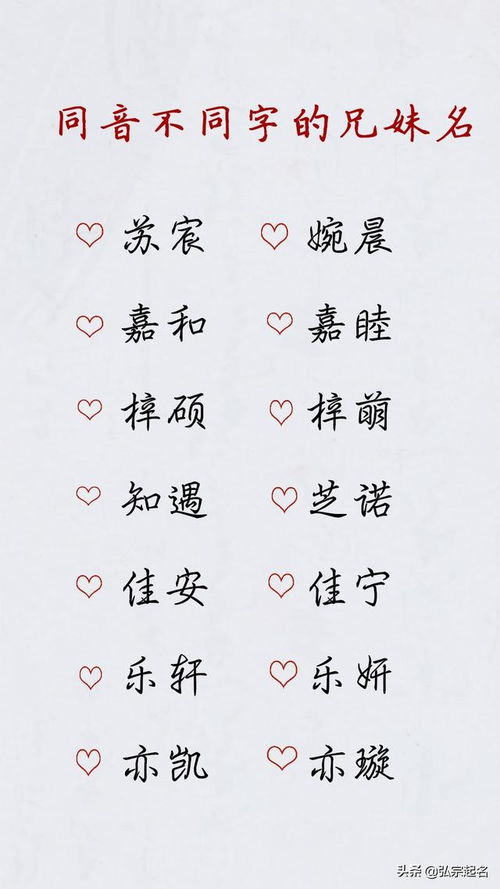 同音不同字的兄妹名
苏宸 婉晨
嘉和 嘉睦
梓硕 梓萌
知遇 芝诺
佳安 佳宁
乐轩 乐妍
亦凯 亦璇
头条 @弘宗起名